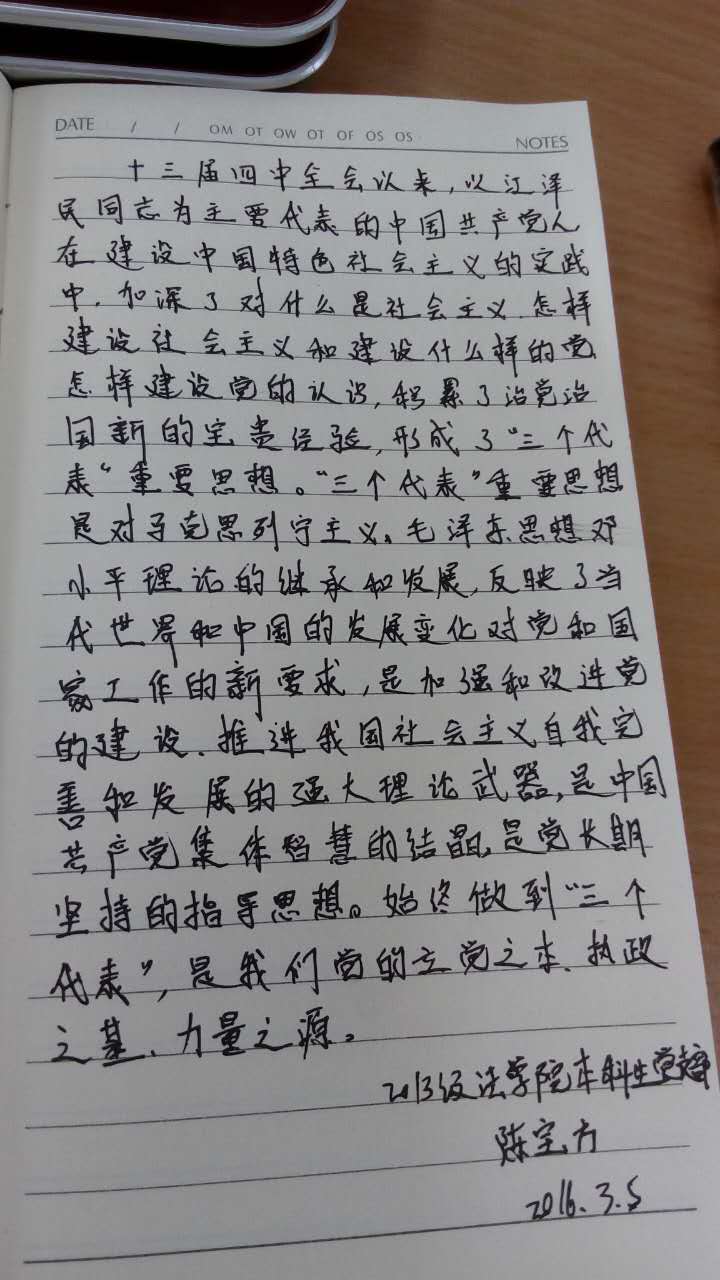 DATE / / OM OT OW OT OF OS OS NOTES
十三届四中全会以来，以江泽
民同志为主要代表的中国共产党人
在建设中国特色社会主义的实践
中，加深了对什么是社会主义、怎样
建设社会主义和建设什么样的党、
怎样建设党的认识，积累了治党治
国新的宝贵经验，形成了“三个代
表”重要思想。“三个代表”重要思想
是对马克思列宁主义、毛泽东思想邓
小平理论的继承和发展，反映了当
代世界和中国的发展变化对党和国
家工作的新要求，是加强和改进党
的建设、推进我国社会主义自我完
善和发展的强大理论武器，是中国
共产党集体智慧的结晶，是党长期
坚持的指导思想。始终做到“三个
代表”，是我们党的立党之本、执政
之基、力量之源。
2013级法学院本科生党
陈宝方
2016.3.5